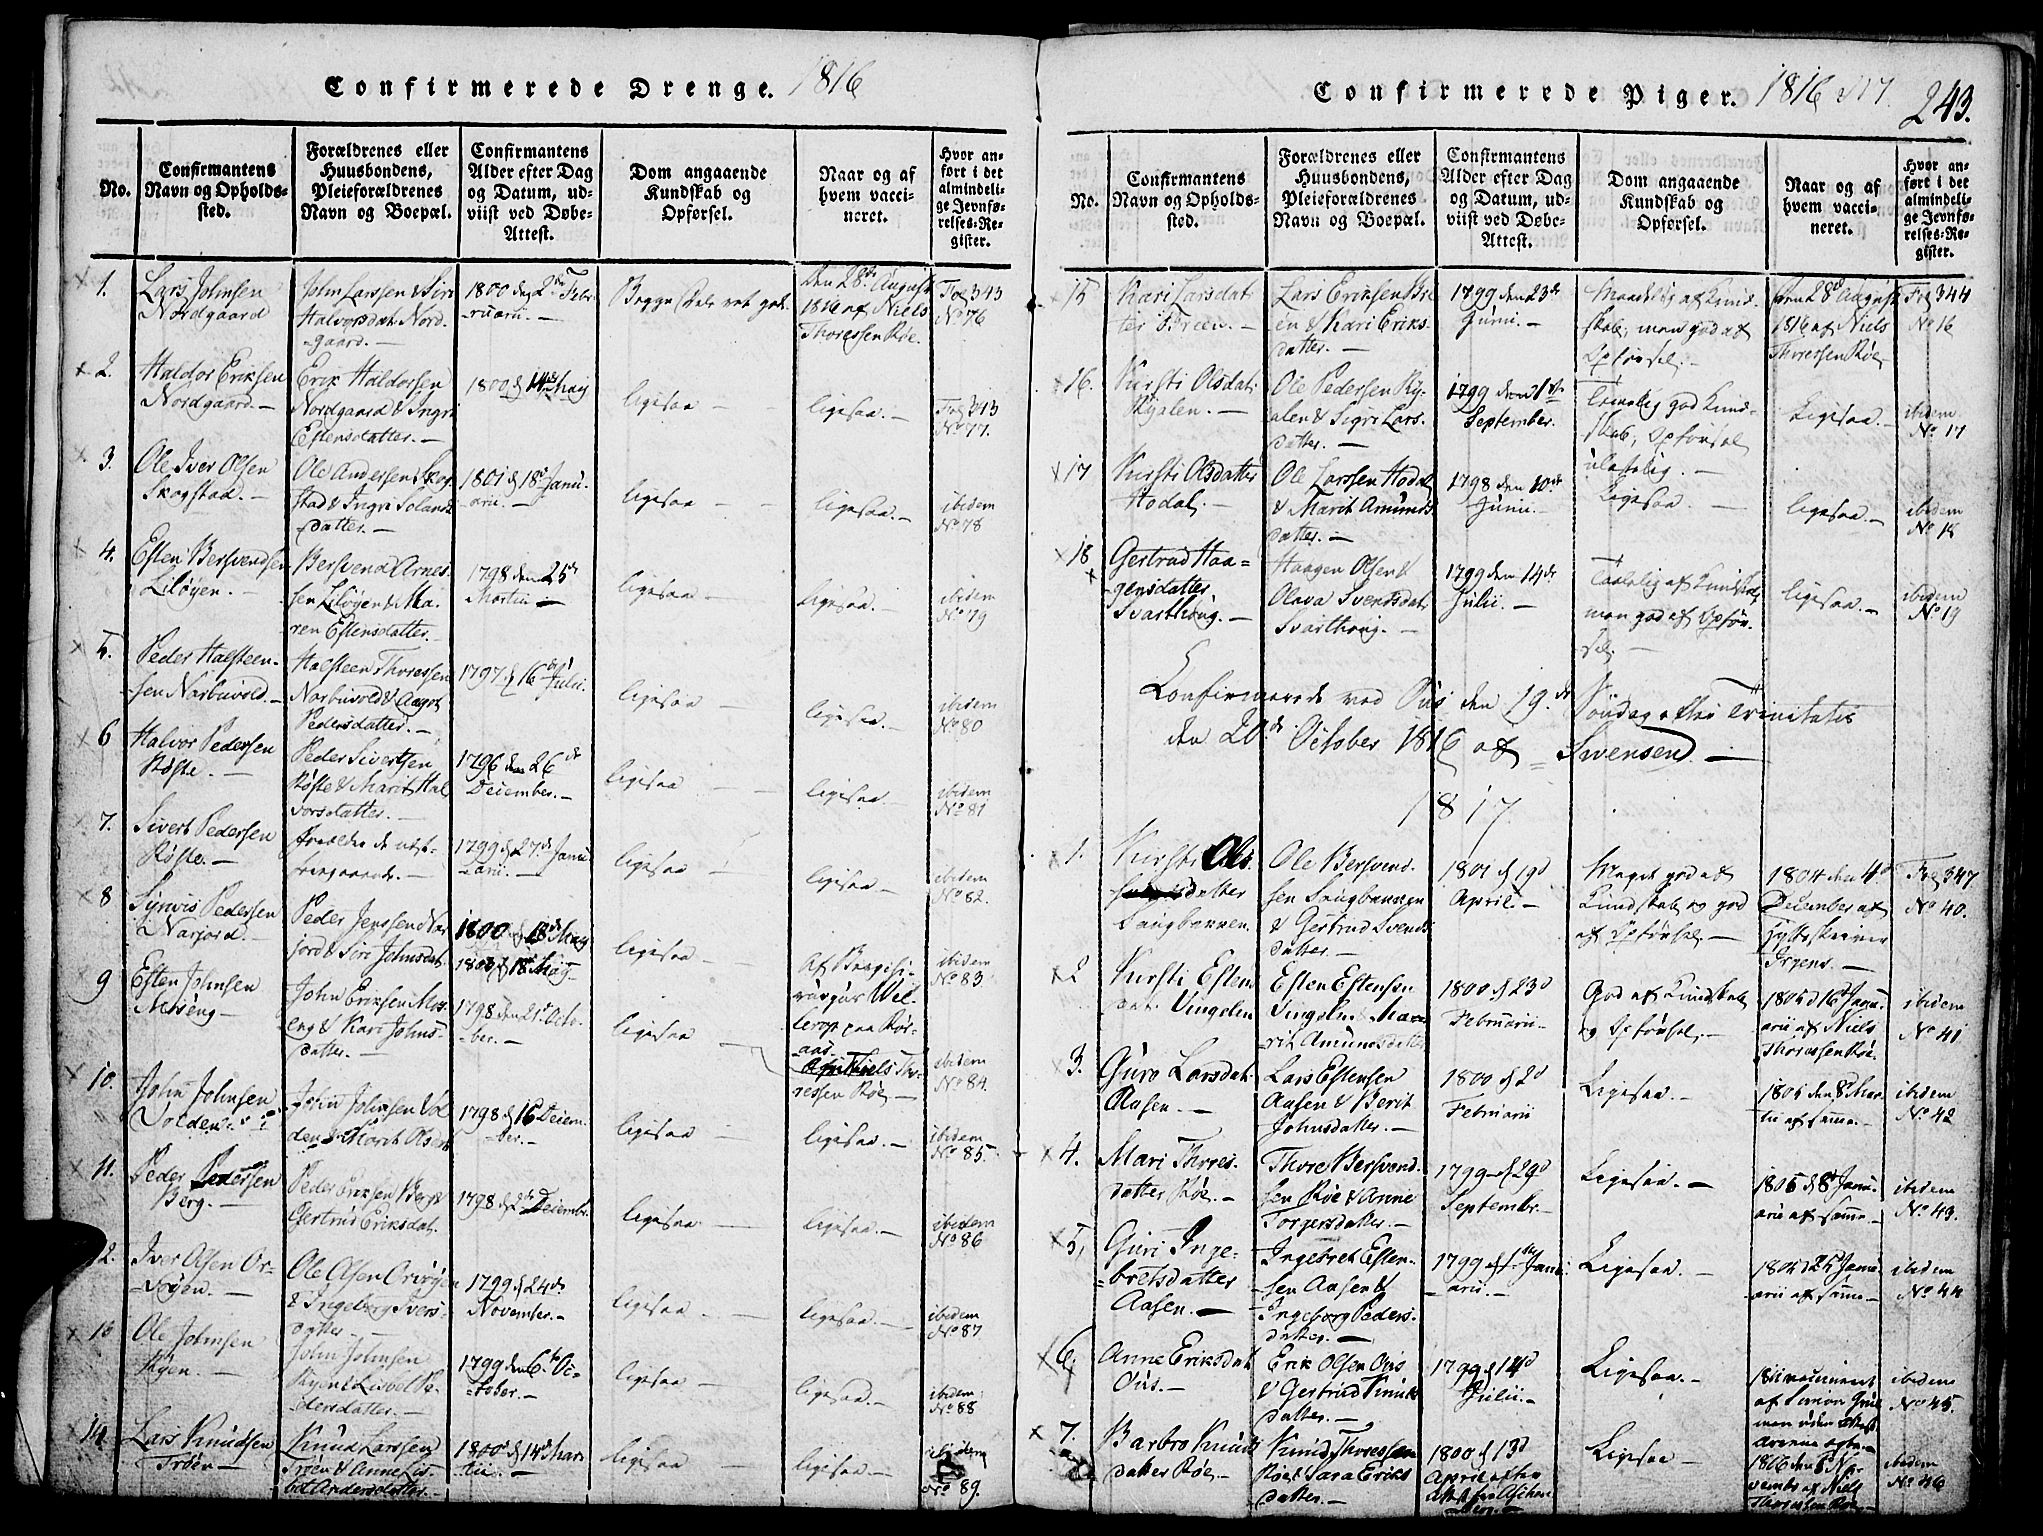 Confirmerede Drenge. 1816
No.
Confirmantens Navn og Opholds-sted.
Forældrenes eller Huusbondens, Pleieforældrenes Navn og Boepæl.
Confirmantens Alder efter Dag og Datum, ud-viist ved Døbe-Attest.
Dom angaaende Kundskab og Opførsel.
Naar og af hvem vacci-neret.
Hvor an-ført i det almindeli-ge Jevnfø-relses-Re-gister.
1. Lars Johnsen Nordgaard
John Larssen & Siri Halvorsdat. Nord-gaard.
1800 den 2den Febr-ruarii.
Den 28de August 1816 af Niels Thoressen Røe.
Fol 343 No 76
2. Haldor Eriksen Nordgaard.
Erik Haldorsen Nordgaard & Ingri Estensdatter.
1800 d 14de Maij
ligesaa
ligesaa.
Fol 343 No 77.
3. Ole Iver Olsen Skogstad.
Ole Andersen Skog-stad & Ingri datter.
1801 d 18de Janu-arii.
ligesaa
ligesaa.
ibidem No 78
4. Esten Bersvendsen Liløyen.
Bersvend Arnes-sen Liløyen & Ma-ren Estensdatter.
1798 den 25de Martii
ligesaa
ligesaa.
ibidem No 79
5. Peder Halsteen-sen Narbuvold.
Halsteen Thoressen Narbuvold & Aagot Pedersdatter.
1797 d 16de Julii.
ligesaa
ligesaa.
ibidem No 80
6 Halvor Pedersen Røste.
Peder Sivertsen Røste & Marit Hal-vorsdatter.
1796 den 26de December.
ligesaa
ligesaa
ibidem No 81
7. Sivert Pedersen Røste.
1799 d 27de Janu-arii.
ligesaa
ligesaa
ibidem No 82.
8 Pedersen Narjord.
Peder Jenssen Nar-jord & Siri Johnsdat.
1800 d 18de Maij
1800 d 18de Maij
ligesaa
ibidem No 83.
9 Esten Johnsen Moseng
John Eriksen Mos-eng & Kari Johns-datter.
1798 den 21de Octo-ber.
ligesaa
ibidem No 84.
10. John Johnsen Volden
John Johnsen Vol-den & Marit Olsdat.
1798 d 16 Decem-ber.
ligesaa
Niels Tho-ressen Røe
ligesaa.
ibidem No 85.
11. Peder Pedersen Berg.
Peder Eriksen Berg & Gertrud Eriksdat.
1798 d 2de Decembr.
ligesaa
ligesaa
ibidem No 86
12. Iver Olsen Or-vøyen.
Ole Olsen Orvøyen & Ingeborg Ivers-datter
1799 d 24de November.
ligesaa
ligesaa.
ibidem No 87
13 Ole Johnsen Ryen.
John Johnsen Ryen & Lisbet Pe-dersdatter.
1799 den 6te Oc-tober.
ligesaa
ligesaa
ibidem No 88
14 Lars Knudsen Trøen
Knud Larssen Trøen & Anne Lis-bet Andersdatter.
1800 d 14de Mar-tii.
ligesaa
ligesaa
ibidem No 89.
Confirmerede Piger. 1816 & 17
243.
No.
Confirmantens Navn og Opholds-sted.
Forældrenes eller Huusbondens, Pleieforældrenes Navn og Boepæl.
Confirmantens Alder efter Dag og Datum, ud-viist ved Døbe-Attest.
Dom angaaende Kundskab og Opførsel.
Naar og af hvem vacci-neret.
Hvor an-ført i det almindeli-ge Jevnfø-relses-Re-gister.
15 Kari Larsdat-ter Breen.
Lars Eriksen Bre-en & Kari Eriks-datter.
1799 den 23de Junii.
Maadelig af Kund-skab, men god af Opførsel.
Den 28de August 1816 af Niels Thoressen Røe
Fol 344 No 16
16. Kirsti Olsdat. Ryalen.
Ole Pedersen Ry-alen & Sigri Lars-datter.
1799 den 21de September.
Temelig god Kund-skab, Opførsel ulastelig.
Ligesaa.
ibidem No 17
17 Kirsti Olsdatter Hodal.
Ole Larssen Hodal & Marit Amunds-datter.
1798 den 10de Junii.
Ligesaa.
ligesaa.
ibidem No 18
18 Gertrud Haa-gensdatter Svarthoug.
Haagen Olsen & Olava Svendsdat. Svarthoug.
1799 den 14de Julii.
Taalelig af Kundskab, men god af Opfør-sel.
ligesaa.
ibidem No 19
Confirmerede ved Øus den 19de Søndag efter Trinitatis
den 20de October 1816 af Svensen
1817
1. Kirsti Ols-datter Laugbannen
Ole Bersvend-sen Laugbannen & Gertrud Svends-datter.
1801 d 19d April
Meget god af Kundskab og god af Opførsel.
1804 den 4de December af Hytteskriver Irgens.
Fol 347 No 40.
2 Kirsti Estens-dat. Vingelen
Esten Estensen Vingelen & Ma-rit Amundsdatter
1800 d 23d Februarii
God af Kundskab og Opførsel.
1805 d 16de Janu-arii af Niels Thoressen Røe.
ibidem No 41
3. Guro Larsdat. Aasen.
Lars Estensen Aasen & Berit Johnsdatter.
1800 d 2d Februarii
Ligesaa.
1805 den 8de Mar-tii af samme.
ibidem No 42
4. Mari Thores-datter Røe.
Thore Bersvend-sen Røe & Anne Torgersdatter.
1799 d 29d Septembr.
Ligesaa.
1805 d 8de Janu-arii af samme
ibidem No 43.
5, Guri Inge-bretsdatter Aasen.
Ingebret Esten-sen Aasen & Ingeborg Peders-datter.
1799 d 1ste Janu-arii
Ligesaa.
1805 d 25de Janu-arii af samme
ibidem No 44
6. Anne Eriksdat. Øus.
Erik Olsen Øus & Gertrud Knuds-datter.
1799 d 14d Julii.
Ligesaa.
1811 vaccineret af Simon uden Attest
ibidem No 45.
7. Barbro Knuds-datter Røe
Knud Thoressen Røe & Sara Eriks-datter.
1800 d 13d April efter Attest fra
Ligesaa.
1816 den 6te No-vembr af Niels Thoressen Røe.
ibidem No 46